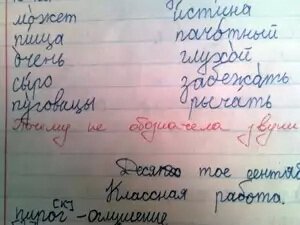 может истина
пища пачотный
очень глухой
сыро забежать
пуговицы рычать
Почему не обозначела звуки
Десятое сентя
Классная работа.
пирог [к] - оглушение